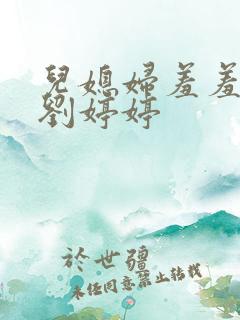 兒媳婦羞羞
劉婷婷
於世疆
未任同意禁止转载